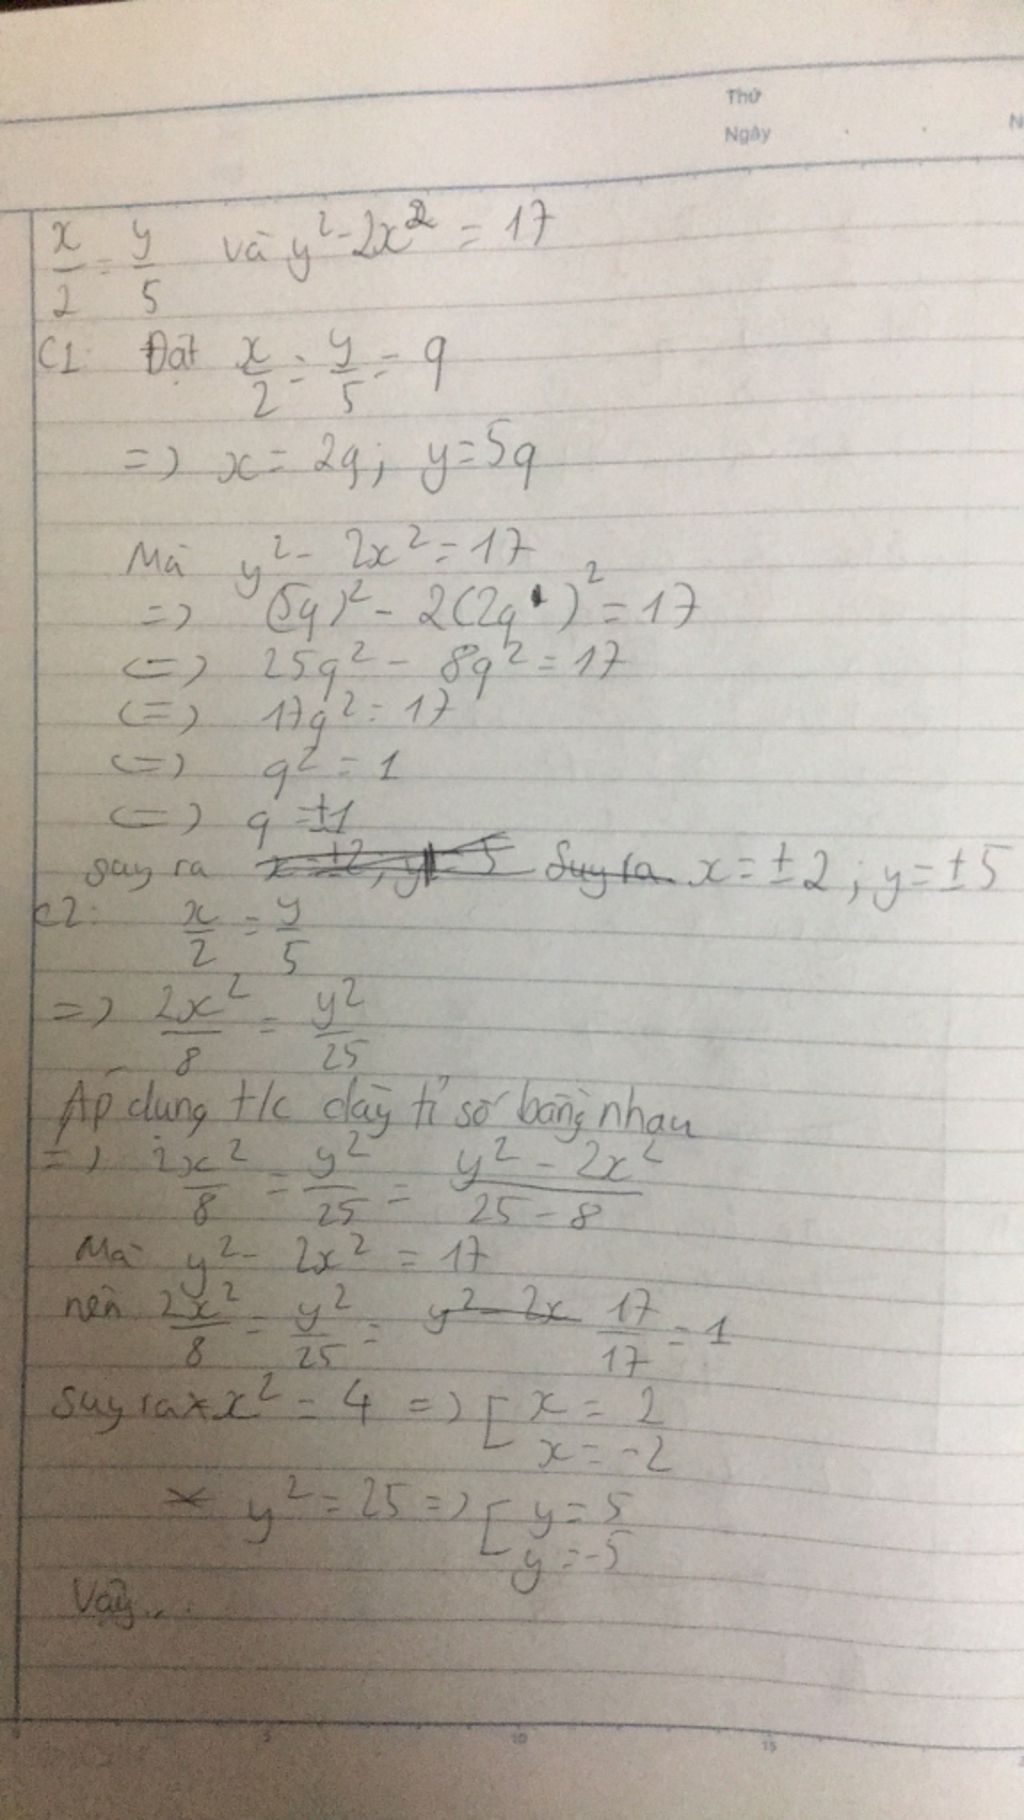 Thứ
Ngày N
x/2 = y/5 và y² - 2x² = 17
C1: Đặt x/2 = y/5 = q
=> x = 2q; y = 5q
Mà y² - 2x² = 17
=> (5q)² - 2(2q)² = 17
<=> 25q² - 8q² = 17
<=> 17q² = 17
<=> q² = 1
<=> q = ±1
suy ra x = ±2; y = 5 Suy ra x = ±2; y = ±5
C2: x/2 = y/5
=> 2x²/8 = y²/25
Áp dụng t/c dãy tỉ số bằng nhau
=> 2x²/8 = y²/25 = (y² - 2x²)/(25 - 8)
Mà y² - 2x² = 17
nên 2x²/8 = y²/25 = y² - 2x 17/17 = 1
Suy ra * x² = 4 => [ x = 2
x = -2
* y² = 25 => [ y = 5
y = -5
Vậy...
5 10 15